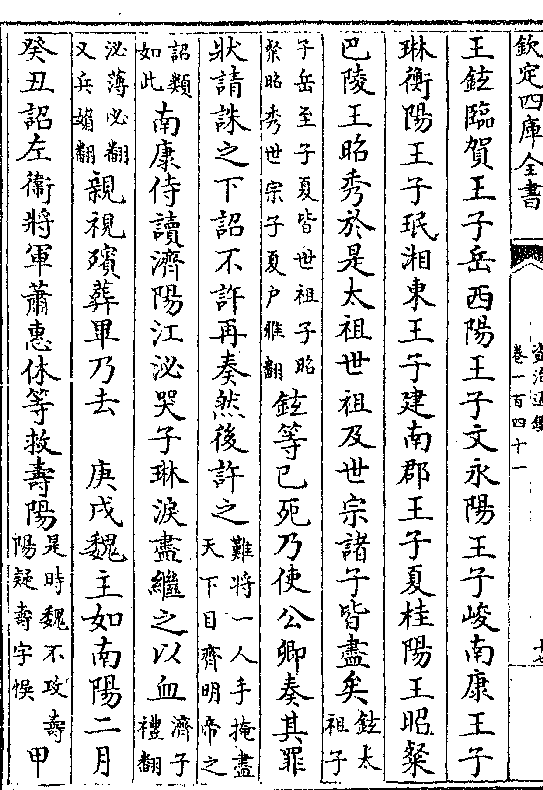 欽定四庫全書
資治通鑑
卷一百四十一
十七
王鉉臨賀王子岳西陽王子文永陽王子峻南康王子
琳衡陽王子珉湘東王子建南郡王子夏桂陽王昭粲
巴陵王昭秀於是太祖世祖及世宗諸子皆盡矣鉉太祖子
子岳至子夏皆世祖子昭粲昭秀世宗子夏户雅翻鉉等已死乃使公卿奏其罪
狀請誅之下詔不許再奏然後許之難將一人手掩盡天下目齊明帝之
詔類如此南康侍讀濟陽江泌哭子琳淚盡繼之以血濟子禮翻
泌薄必翻又兵媚翻親視殯葬畢乃去　庚戌魏主如南陽二月
癸丑詔左衛將軍蕭惠休等救壽陽是時魏不攻壽陽疑壽字悞甲